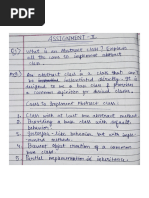 ASSIGNMENT-2
Q1) What is an Abstract class? Explain
all the cases to implement abstract
class.
Ans) An abstract class is a class that can't
be instantiated directly. It is
designed to be a base class & provides
a common interface for derived classes.
Cases to Implement Abstract class:
1. Class with at least one abstract method
2. Providing a base class with default
behavior.
3. Interface-like behavior with
methods.
4. Prevent object creation of a common
base class.
5. Partial implementation in inheritance.